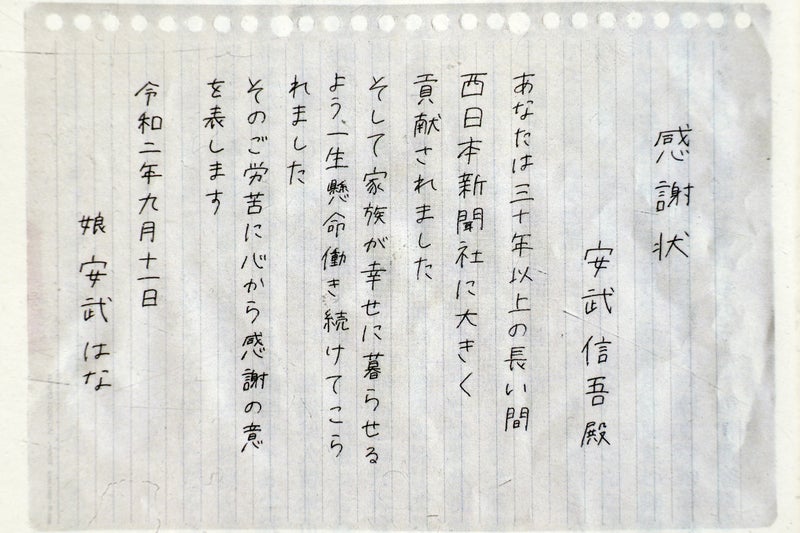 感謝状
安武信吾殿
あなたは三十年以上の長い間
西日本新聞社に大きく
貢献されました
そして家族が幸せに暮らせる
よう、一生懸命働き続けてこら
れました
そのご労苦に心から感謝の意
を表します
令和二年九月十一日
娘 安武はな